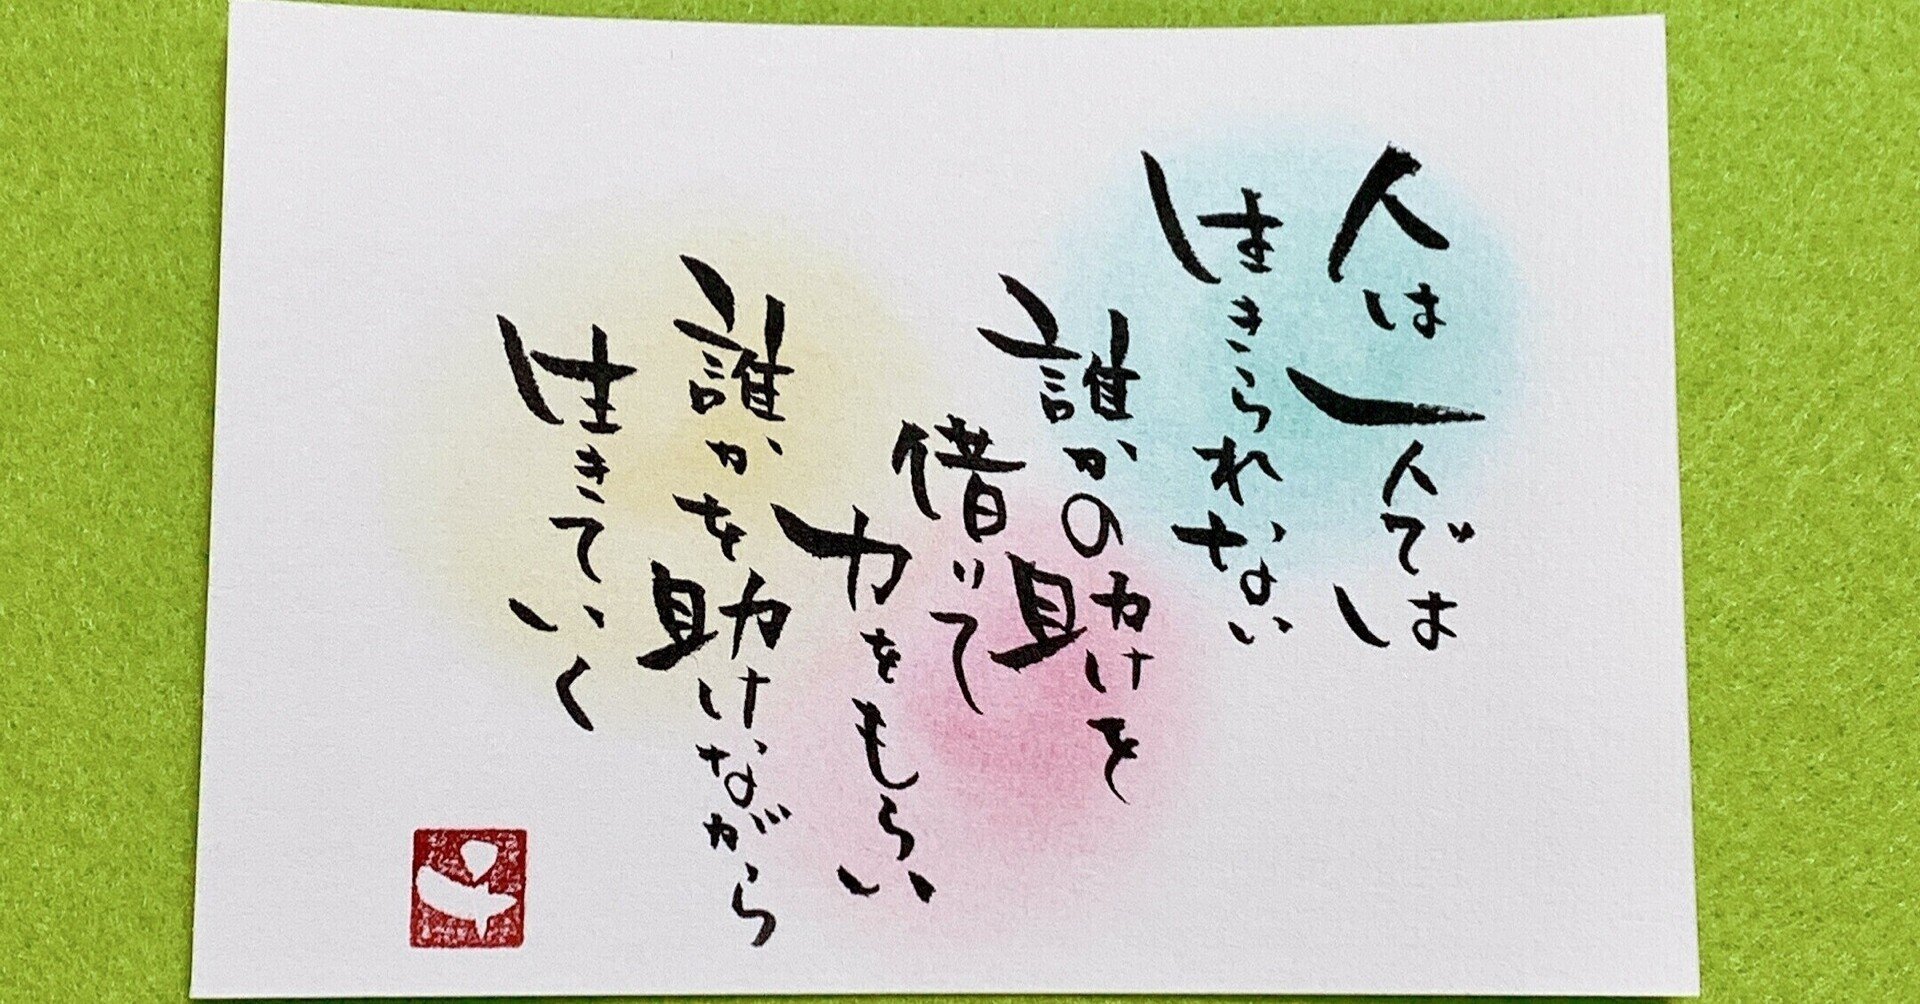 人は一人では
生きられない
誰かの助けを
借りて
力をもらい
誰かを助けながら
生きていく